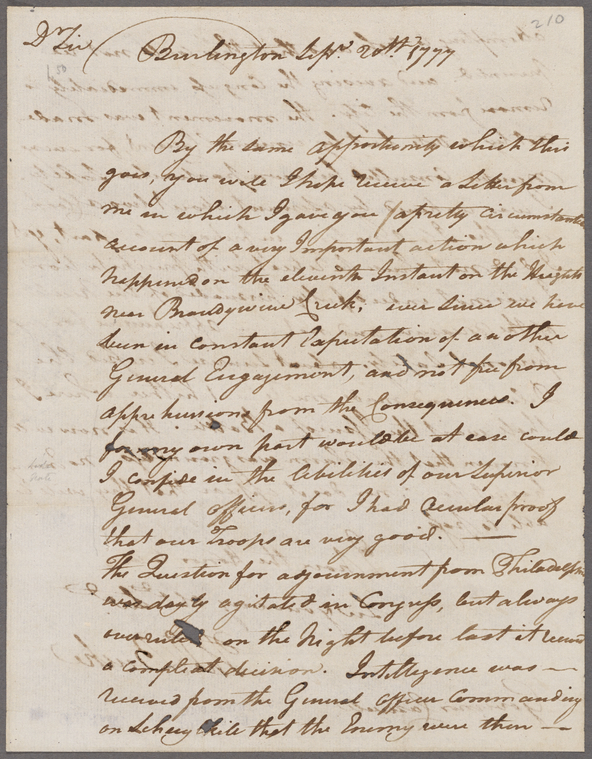 210
Dr Sir
Burlington Sepr. 20th. 1777
By the same opportunity which this
goes, you will I hope receive a Letter from
me in which I gave you a prety circumstantial
account of a very Important action which
happend on the eleventh Instant on the Heights
near Brandywine Creek, ever since we have
been in constant Expectation of another
General Engagement, and not free from
apprehensions from the Consequences. I
for my own part would be at ease could
I confide in the Abilities of our Superior
General officers, for I had occular proof
that our Troops are very good. —
The Question for adjournment from Philadelphia
was dayly agitated in Congress, but always
overruled on the Night before last it receiv
a compleat decision. Intelligence was —
received from the General officer Commanding
on Schuylkill that the Enemy were then —